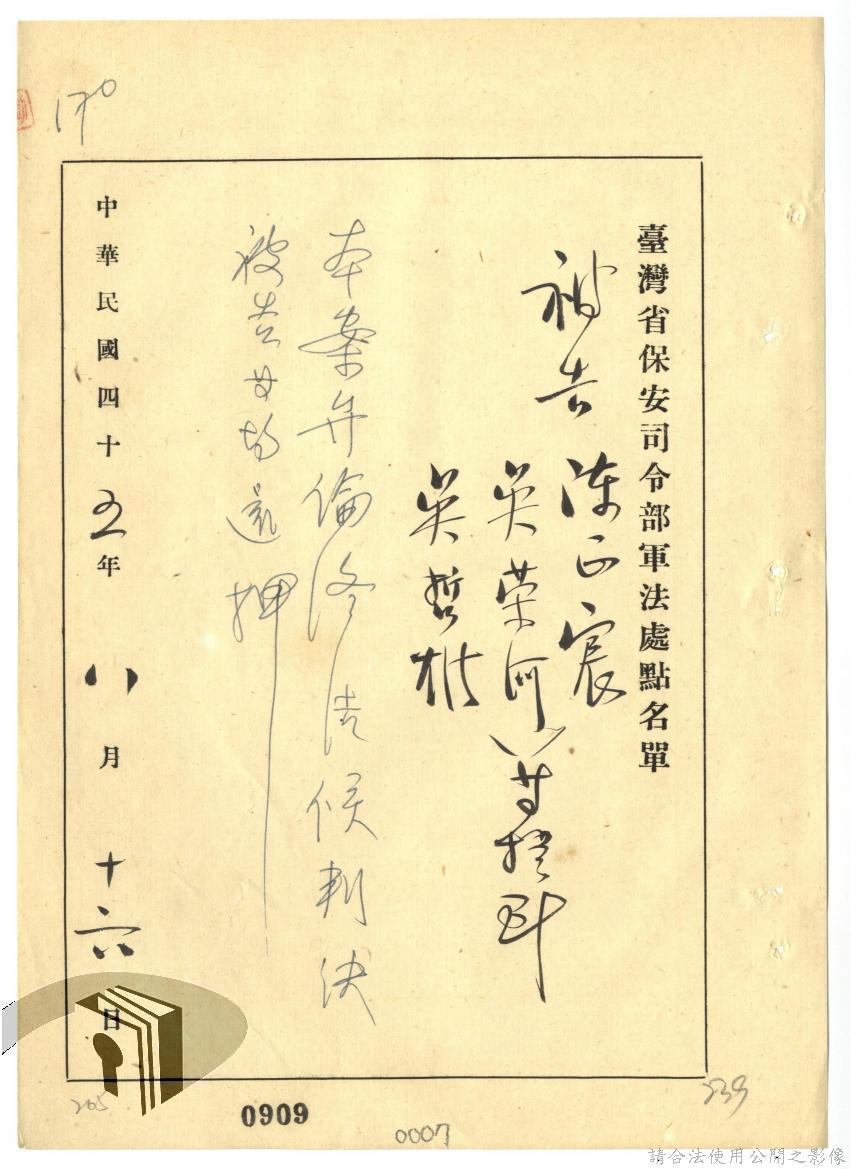 臺灣省保安司令部軍法處點名單
被告 陳正宸
吳榮河 等提到
吳哲雄
本案弁論終結候判決
被告等均還押
中華民國四十五年 八月 十六日
0909
0007
205
239
請合法使用公開之影像